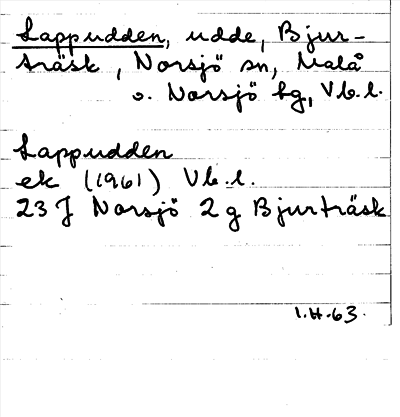 Lappudden, udde, Bjur-
träsk, Norsjö sn, Malå
o. Norsjö tg, Vb.l.
Lappudden
ek (1961) Vb.l.
23 J Norsjö 2 g Bjurträsk
1.H.63.